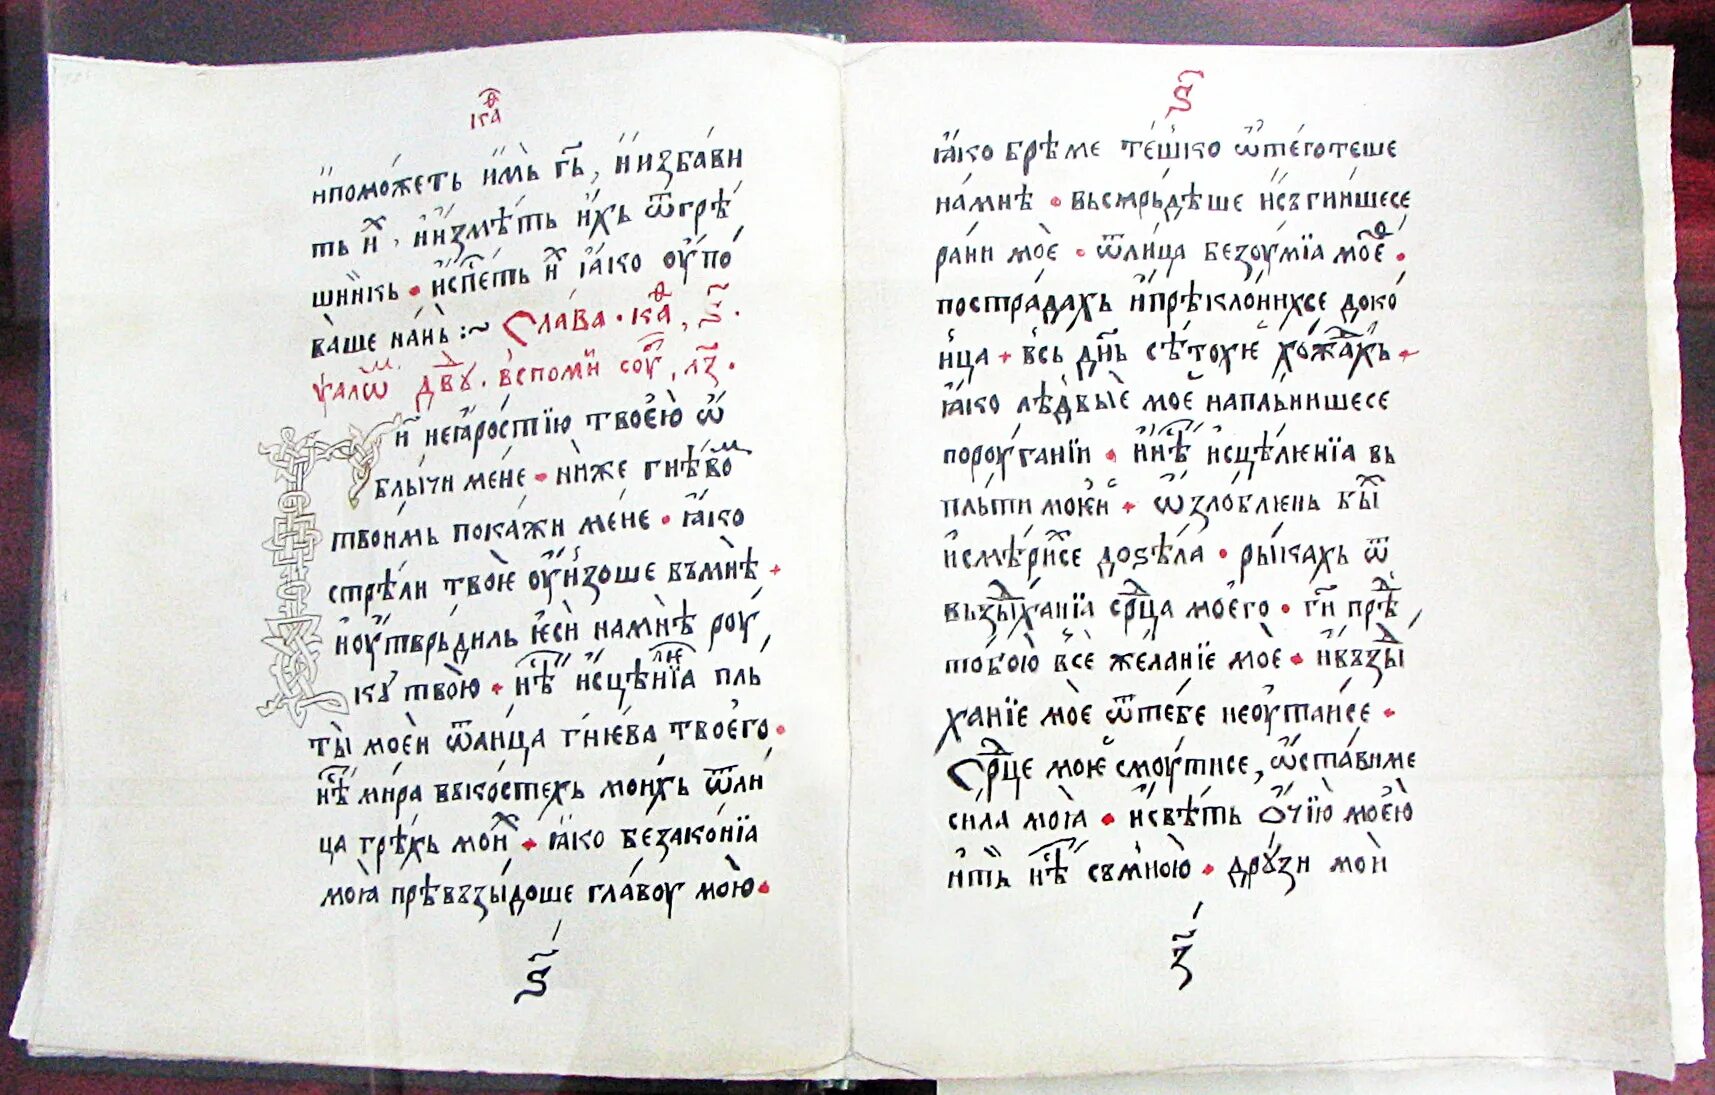 каѳ
и҆помо́жеть и҆̀мь гь҃, и҆избави
ть и҆х, и҆и҆зме́ть и҆́хь ѿгрѣ́
шникь • и҆спⷭ҇еть и҆х ꙗ҆́ко оу҆по́
ва̀ше на́нь :~ Сла́ва • каѳ, ѕ҃ •
ѱалѡⷨ двдꙋ • въспоми соуⷠ, лз҃ •
Ги не꙳ꙗ҆́ростїю твоею̀ ѡ҆
бли́чи ме́не • ни̏же гнѣ́воⷨ
твои́мь пока́жи ме́не • ꙗ҆́ко
стрѣ́ли твоѥ̀ оу҆нзоше въмнѣ̀ +
и҆оу҆твръдиль ѥ҆сѝ намнѣ̀ роу́
кꙋ̀ твою̀ • нⷭ҇ѣ и҆сцѣлѥнїа пль́
ты̀ моеи ѿли́ца гнѥ́ва твоего̀ •
нⷭ҇ѣ ми́ра въко́стехь мои́хь ѿли́
ца грѣ́хь моиⷯ • ꙗ҆́ко безако́нїа
моꙗ̀ прѣвъзы́доше гла́воу мою̀ •
ѕ҃
ѕ҃
ꙗ҆́ко брѣ́ме те́шко ѿтеготеше
на́мнѣ • въсмръдѣ́ше и҆съгни́шесе
ра́ни моѐ • ѿли́ца безоу́мїа моеⷢ •
постра́дахь и҆прѣкло́нихсе доко́
н́ца + въсь дн҃ь сѣ́тоуѥ хо́ждахь +
ꙗ҆́ко лѣ́двыѐ мое̏ напль́нишесе
пороу́ганїи • и҆нⷭ҇ѣ и҆сцѣ́лѥнїа вь
пль́ти моѥи + ѡ҆зло́блѥнь быⷯ
и҆смѣ́рихсе доѕѣ́ла • ры́кахь ѿ
въздыха́нїа срⷣца моего • ги҃ прѣⷣ
то́бою̀ все̏ жела́нїе моѐ • и҆въз҆ды
ха́нїе моѐ ѿте́бе неоу҆таи́се •
Срⷣце моѥ̏ смоу́тисе, ѡ҆ста́виме
си́ла моꙗ̀ • и҆свѣть ѻ҆́чїю моею̀
и҆ть̀ нⷭ҇ѣ съмною̀ • дрꙋ́зи мои̏
з҃